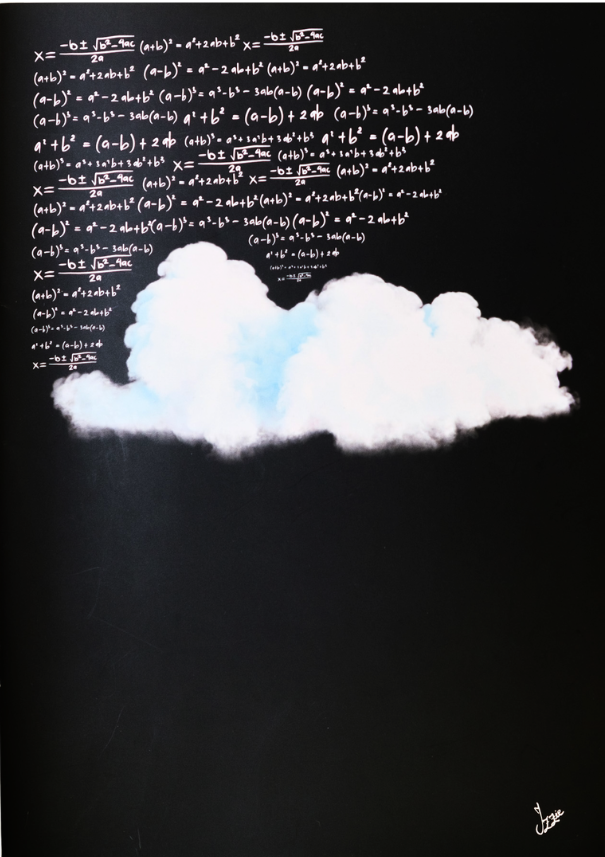 x = -b ± √b² - 4ac / 2a (a+b)² = a² + 2ab + b² x = -b ± √b² - 4ac / 2a
(a+b)² = a² + 2ab + b² (a-b)² = a² - 2ab + b² (a+b)² = a² + 2ab + b²
(a-b)² = a² - 2ab + b² (a-b)³ = a³ - b³ - 3ab(a-b) (a-b)² = a² - 2ab + b²
(a-b)³ = a³ - b³ - 3ab(a-b) a² + b² = (a-b) + 2ab (a-b)³ = a³ - b³ - 3ab(a-b)
a² + b² = (a-b) + 2ab (a+b)³ = a³ + 3a²b + 3ab² + b³ a² + b² = (a-b) + 2ab
(a+b)³ = a³ + 3a²b + 3ab² + b³ x = -b ± √b² - 4ac / 2a (a+b)³ = a³ + 3a²b + 3ab² + b³
x = -b ± √b² - 4ac / 2a (a+b)² = a² + 2ab + b² x = -b ± √b² - 4ac / 2a (a+b)² = a² + 2ab + b²
(a+b)² = a² + 2ab + b² (a-b)² = a² - 2ab + b² (a+b)² = a² + 2ab + b² (a-b)² = a² - 2ab + b²
(a-b)² = a² - 2ab + b² (a-b)³ = a³ - b³ - 3ab(a-b) (a-b)² = a² - 2ab + b²
(a-b)³ = a³ - b³ - 3ab(a-b)
x = -b ± √b² - 4ac / 2a
(a+b)² = a² + 2ab + b²
(a-b)² = a² - 2ab + b²
(a-b)³ = a³ - b³ - 3ab(a-b)
a² + b² = (a-b) + 2ab
x = -b ± √b² - 4ac / 2a
(a-b)³ = a³ - b³ - 3ab(a-b)
a² + b² = (a-b) + 2ab
(a+b)³ = a³ + 3a²b + 3ab² + b³
x = -b ± √b² - 4ac / 2a